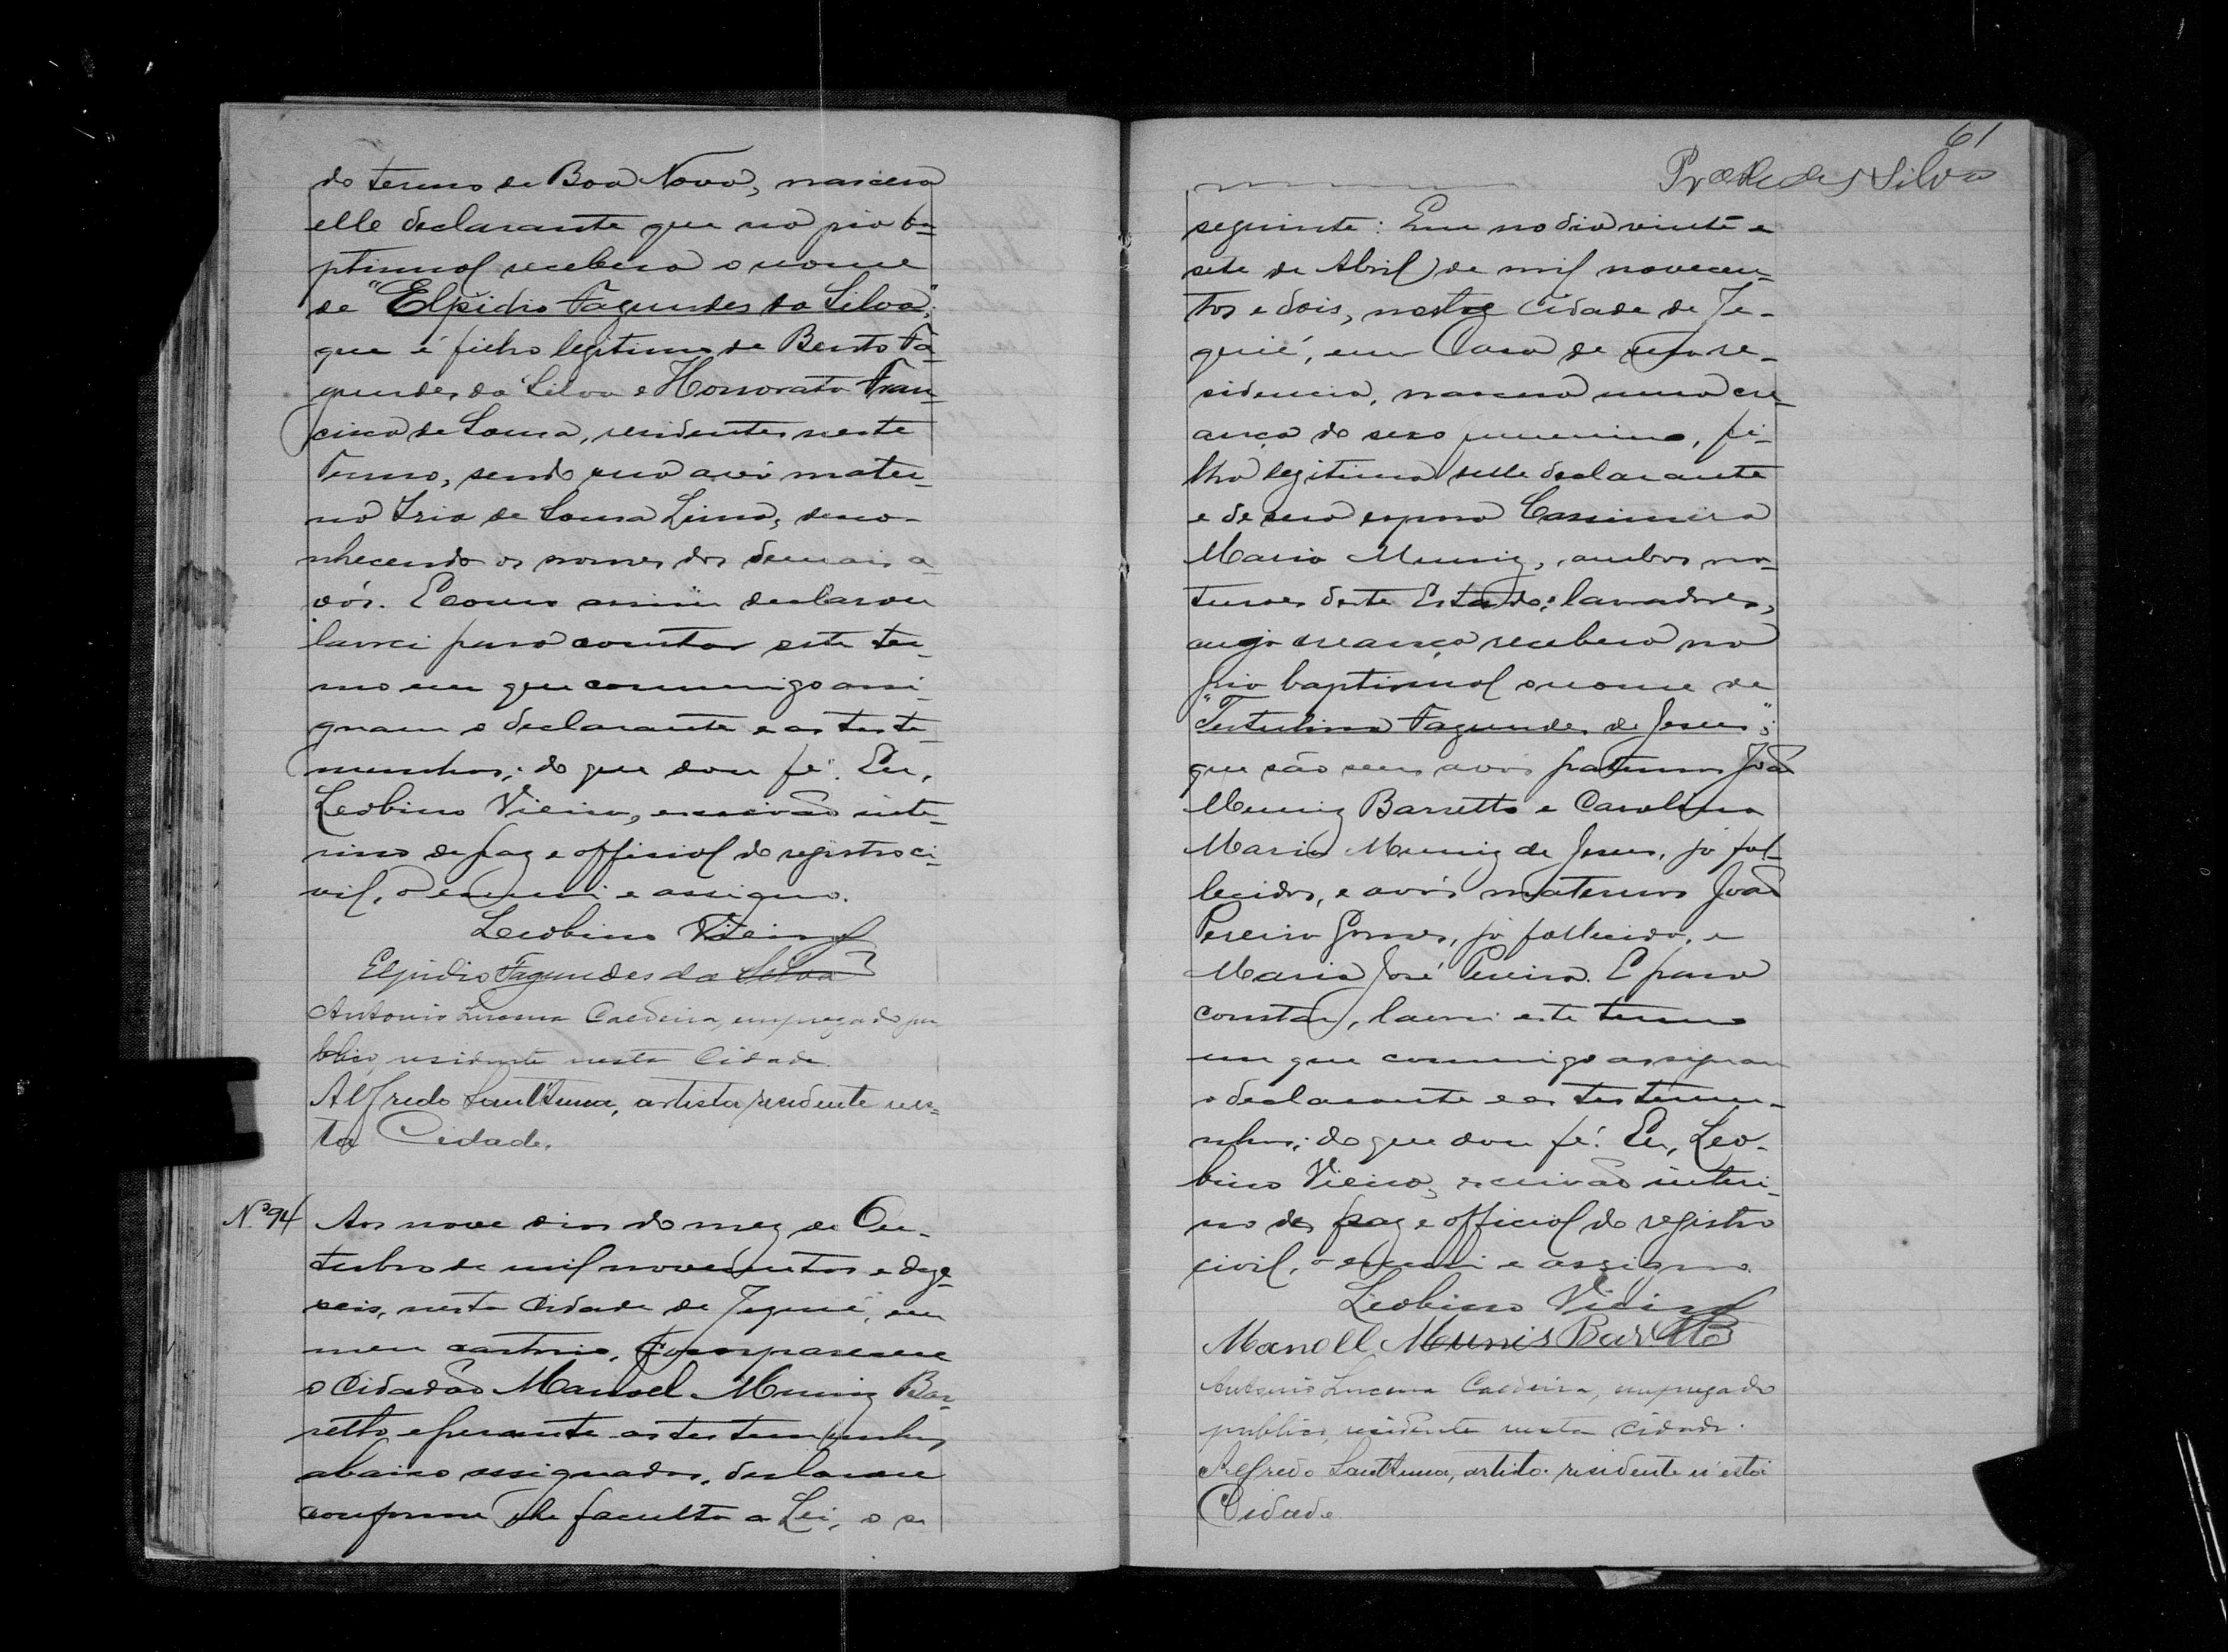 do termo de Boa Nova, nascera
elle declarante que na pia ba-
ptismal recebera o nome
de "Elpidio Fagundes da Silva";
que é filho legitimo de Bento Fa-
gundes da Silva e Honorata Fran-
cisca de Souza, residentes neste
termo, sendo sua avó mater-
na Iria de Souza Lima, desco-
nhecendo os nomes dos demais a-
vós. E como assim declarou
lavrei para constar este ter-
mo em que commigo assi-
gnam o declarante e as teste-
munhas; do que dou fé. Eu,
Leobino Vieira, escrivão inte-
rino de paz e official do registro ci-
vil, o escrevi e assigno.
Leobino Vieira
Elpidio Fagundes da Silva
Antonio Lucena Caldeira, empregado pu
blico, residente nesta Cidade.
Alfredo Sant'Anna, artista, residente nes-
ta Cidade.
Nº 94 Aos nove dias do mez de Ou-
tubro de mil novecentos e deze-
seis, nesta Cidade de Jequié, em
meu cartorio, compareceu
o Cidadão Manoel Muniz Bar-
retto e perante as testemunhas
abaixo assignadas, declarou
conforme lhe faculta a Lei, o se
61
Silva
seguinte: Que no dia vinte e
sete de Abril de mil novecen-
tos e dois, nesta Cidade de Je-
quié, em Casa de sua re-
sidencia, nasceu uma cre-
ança do sexo feminino, fi-
lha legitima delle declarante
e de sua esposa Cassimira
Maria Muniz, ambos na-
turaes deste Estado, lavradores,
cuja creança recebera na
pia baptismal o nome de
"Tertulina Fagundes de Jesus";
que são seus avós paternos João
Muniz Barretto e Carolina
Maria Muniz de Jesus, já fal-
lecidos, e avós maternos João
Pereira Gomes, já fallecido, e
Maria José Pereira. E para
constar, lavrei este termo
em que commigo assignam
o declarante e as testemu-
nhas; do que dou fé. Eu, Leo-
bino Vieira, escrivão interi-
no de paz e official do registro
civil, o escrevi e assigno.
Leobino Vieira
Manoel Munis Baretto
Antonio Lucena Caldeira, empregado
publico, residente nesta cidade.
Alfredo Sant'Anna, artista residente n'esta
Cidade